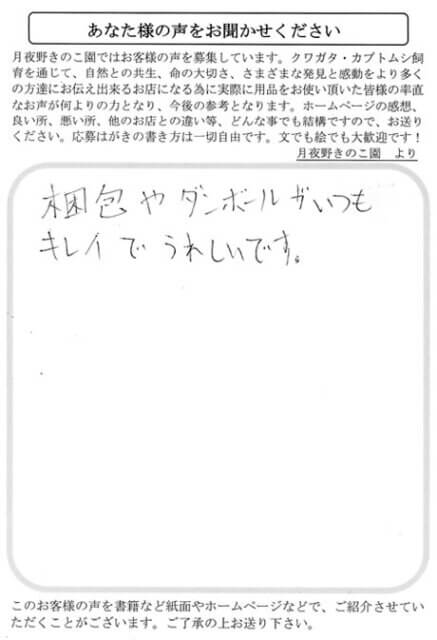 あなた様の声をお聞かせください
月夜野きのこ園ではお客様の声を募集しています。クワガタ・カブトムシ飼
育を通じて、自然との共生、命の大切さ、さまざまな発見と感動をより多く
の方達にお伝え出来るお店になる為に実際に用品をお使い頂いた皆様の率直
なお声が何よりの力となり、今後の参考となります。ホームページの感想、
良い所、悪い所、他のお店との違い等、どんな事でも結構ですので、お送り
ください。応募はがきの書き方は一切自由です。文でも絵でも大歓迎です！
月夜野きのこ園　より
梱包やダンボールがいつも
キレイでうれしいです。
このお客様の声を書籍など紙面やホームページなどで、ご紹介させてい
ただくことがございます。ご了承の上お送り下さい。